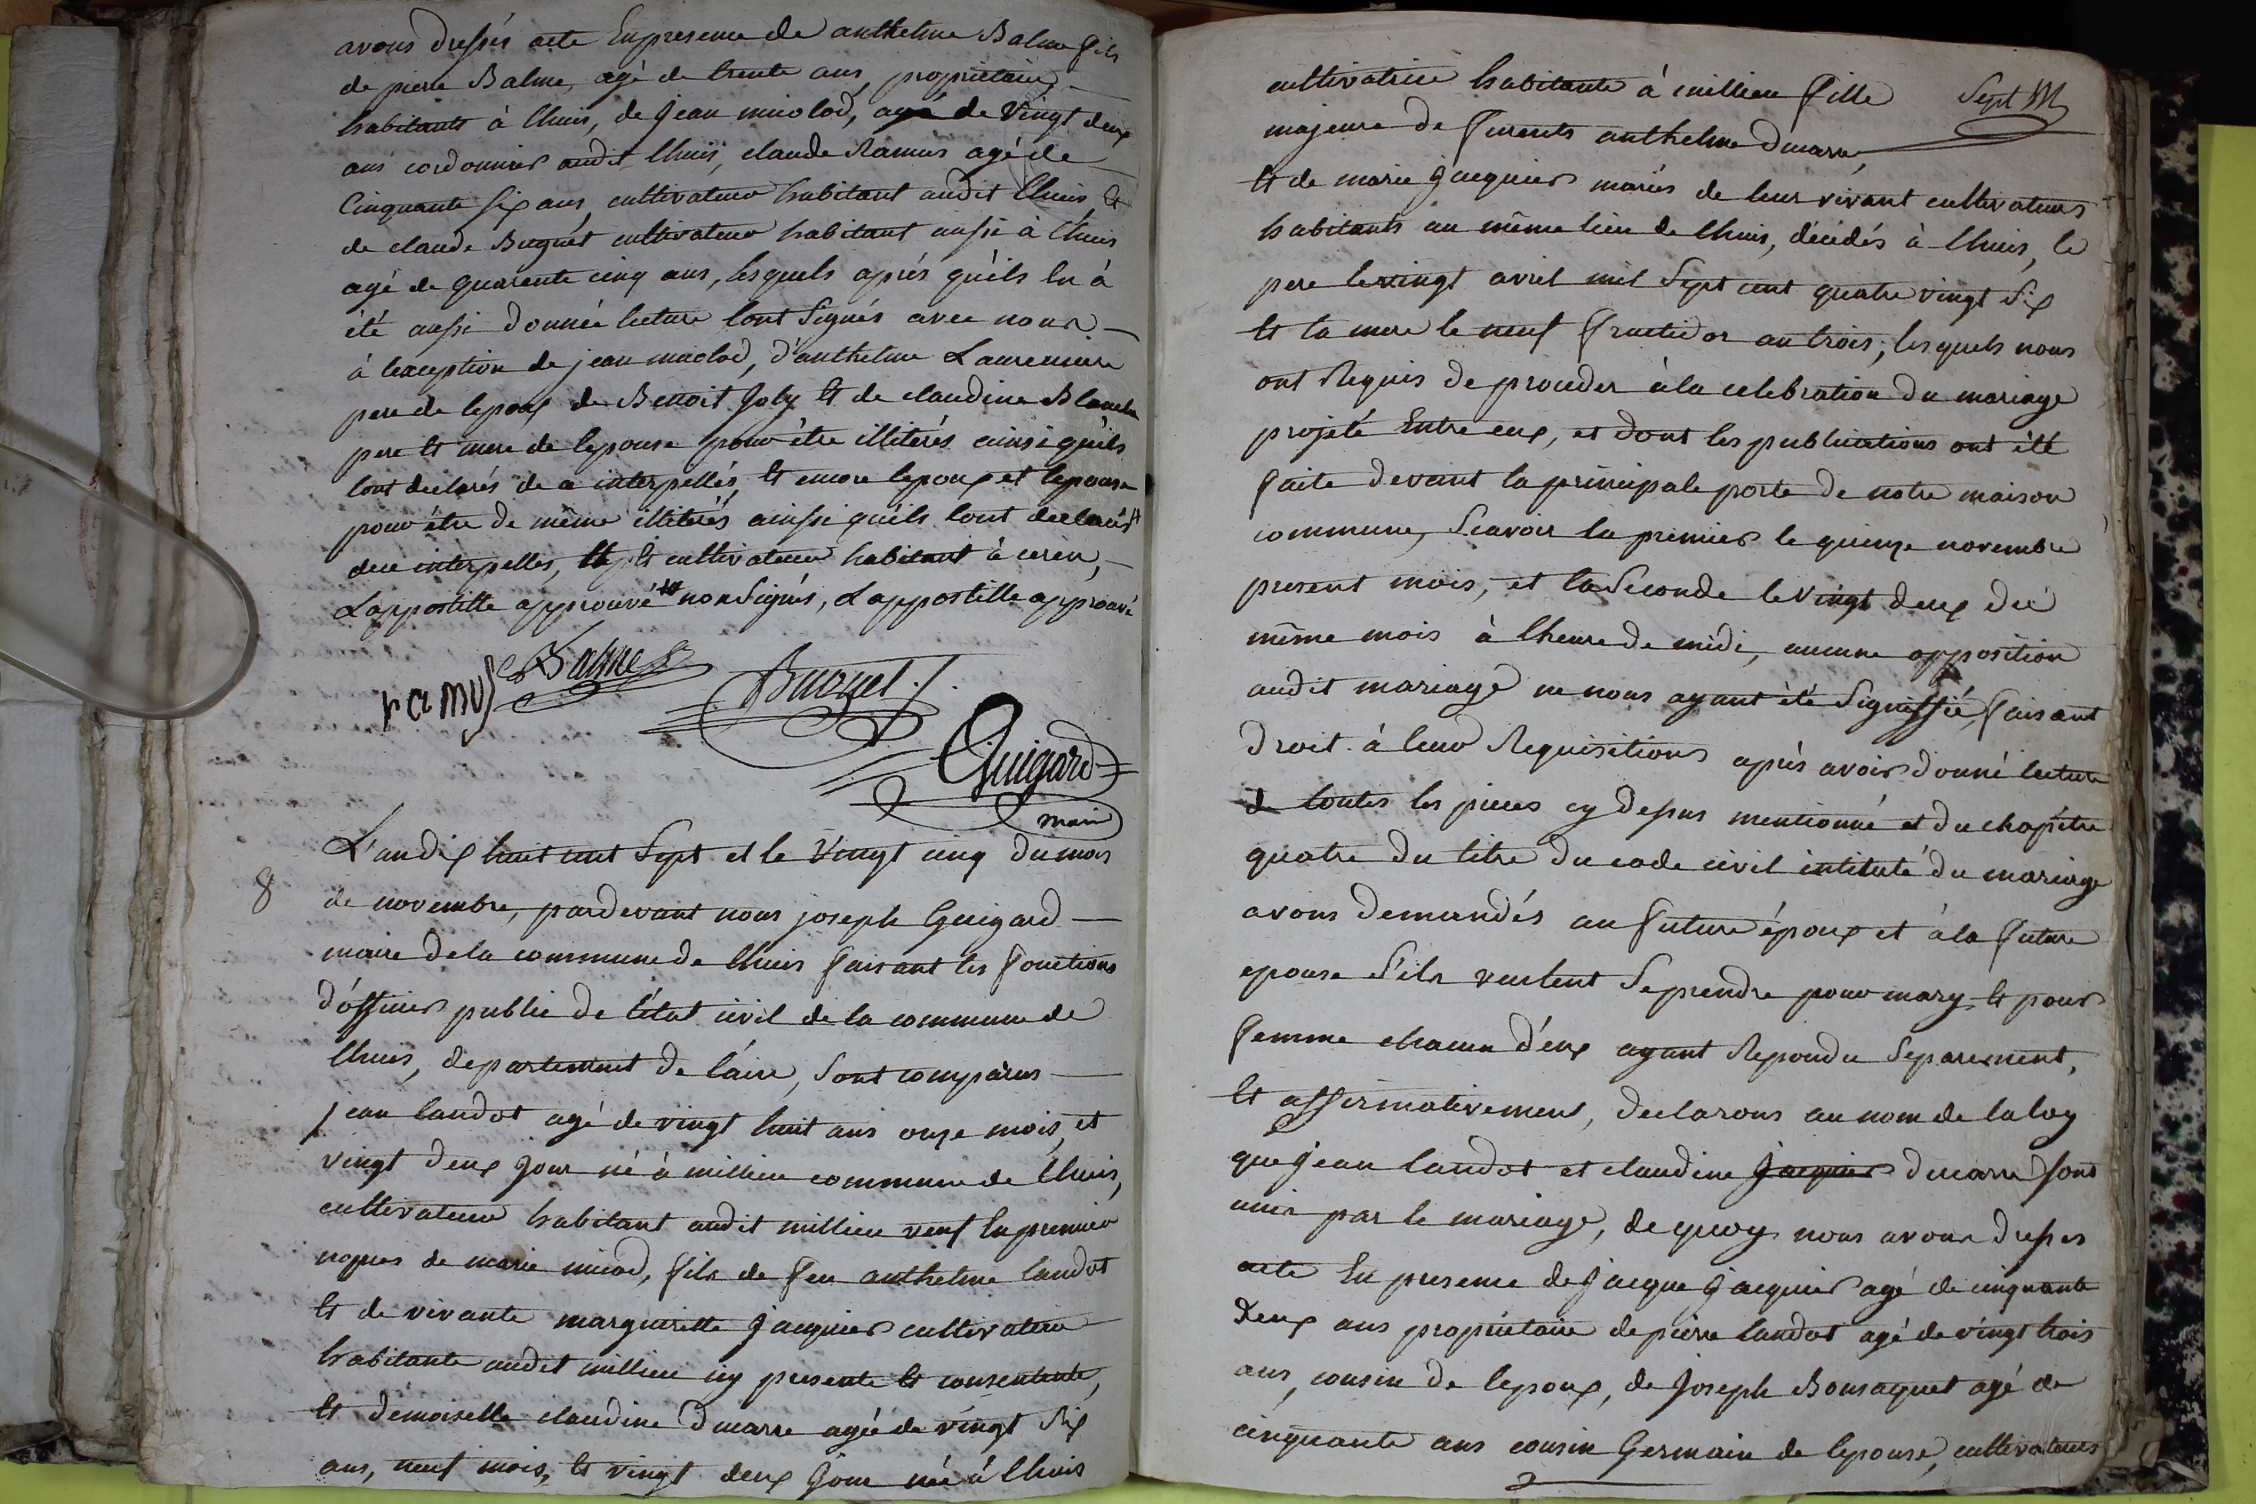 avons dressés acte En presence de anthelme Balme fils
de pierre Balme, agé de trente ans, proprietaire,
habitants à lhuis, de jean miolod, agé de vingt deux
ans cordonnier audit lhuis, claude Ramus agé de
Cinquante six ans, cultivateur habitant audit lhuis, Et
de claude Buguet cultivateur habitant aussi à lhuis
agé de quarente cinq ans, lesquels après qu'ils lu à
été aussi donnée lecture sont signés avec nous
à l'exception de jean miolod, d'anthelme Laurencin
pere de lepoux de Benoit Joly Et de claudine Blanchin
pere Et mere de lepouse pour être illiterés ainsi qu'ils
sont declarés de ce interpellés, Et encore lepoux et lepouse
pour être de même illiterés ainssi qu'ils sont declarés
dece interpelles, Et cultivateur habitant à ceren,
L'appostille approuvé non signés, L'appostille approuvé
ramus Balme Buguet
Guigard
maire
8
L'an dix huit cent sept et le vingt cinq du mois
de novembre, pardevant nous joseph Guigard
maire de la commune de lhuis faisant les fonctions
d'officier public de l'état civil de la commune de
lhuis, departement de l'ain, sont comparus
jean landot agé de vingt huit ans onze mois, et
vingt deux jour né à millieu commune de lhuis,
cultivateur habitant audit millieu veuf En premier
nopces de marie miod, fils de feu anthelme landot
Et de vivante marguerite jacquier cultivatrice
habitante audit millieu icy presente Et consentente,
Et demoiselle claudine Ducarre agée de vingt six
ans, neuf mois, Et vingt deux jour née à lhuis
Sept M
cultivatrice habitante à millieu fille
majeure de furents anthelme Ducarre,
Et de marie jacquier mariés de leur vivant cultivateurs
habitants au même lieu de lhuis, décédés à lhuis, le
pere le vingt avril mil sept cent quatre vingt six
Et la mere le neuf fructidor an trois, lesquels nous
ont Requis de proceder à la celebration du mariage
projeté Entre eux, et dont les publications ont été
faite devant la principale porte de notre maison
commune, Scavoir la premier le quinze novembre
present mois, et la seconde le vingt deux du
même mois à lheure de midi, aucune opposition
audit mariage ne nous ayant été signiffié, faisant
droit à leur Requisitions après avoir donné lecture
de toutes les pieces cy dessus mentionné et du chapitre
quatre du titre du code civil intitulé du mariage
avons demandés au future époux et à la future
epouse s'ils veulent se prendre pour mary Et pour
femme chacun d'eux ayant Repondu separement,
Et affirmativement, declarons au nom de la loy
que jean landot et claudine jacquier ducarre sont
unis par le mariage, de quoy nous avons dressés
acte En presence de jacque jacquier agé de cinquante
deux ans proprietaire de pierre landot agé de vingt trois
ans, cousin de lepoux, de joseph Bonsaquet agé de
cinquante ans cousin Germain de lepouse, cultivateurs